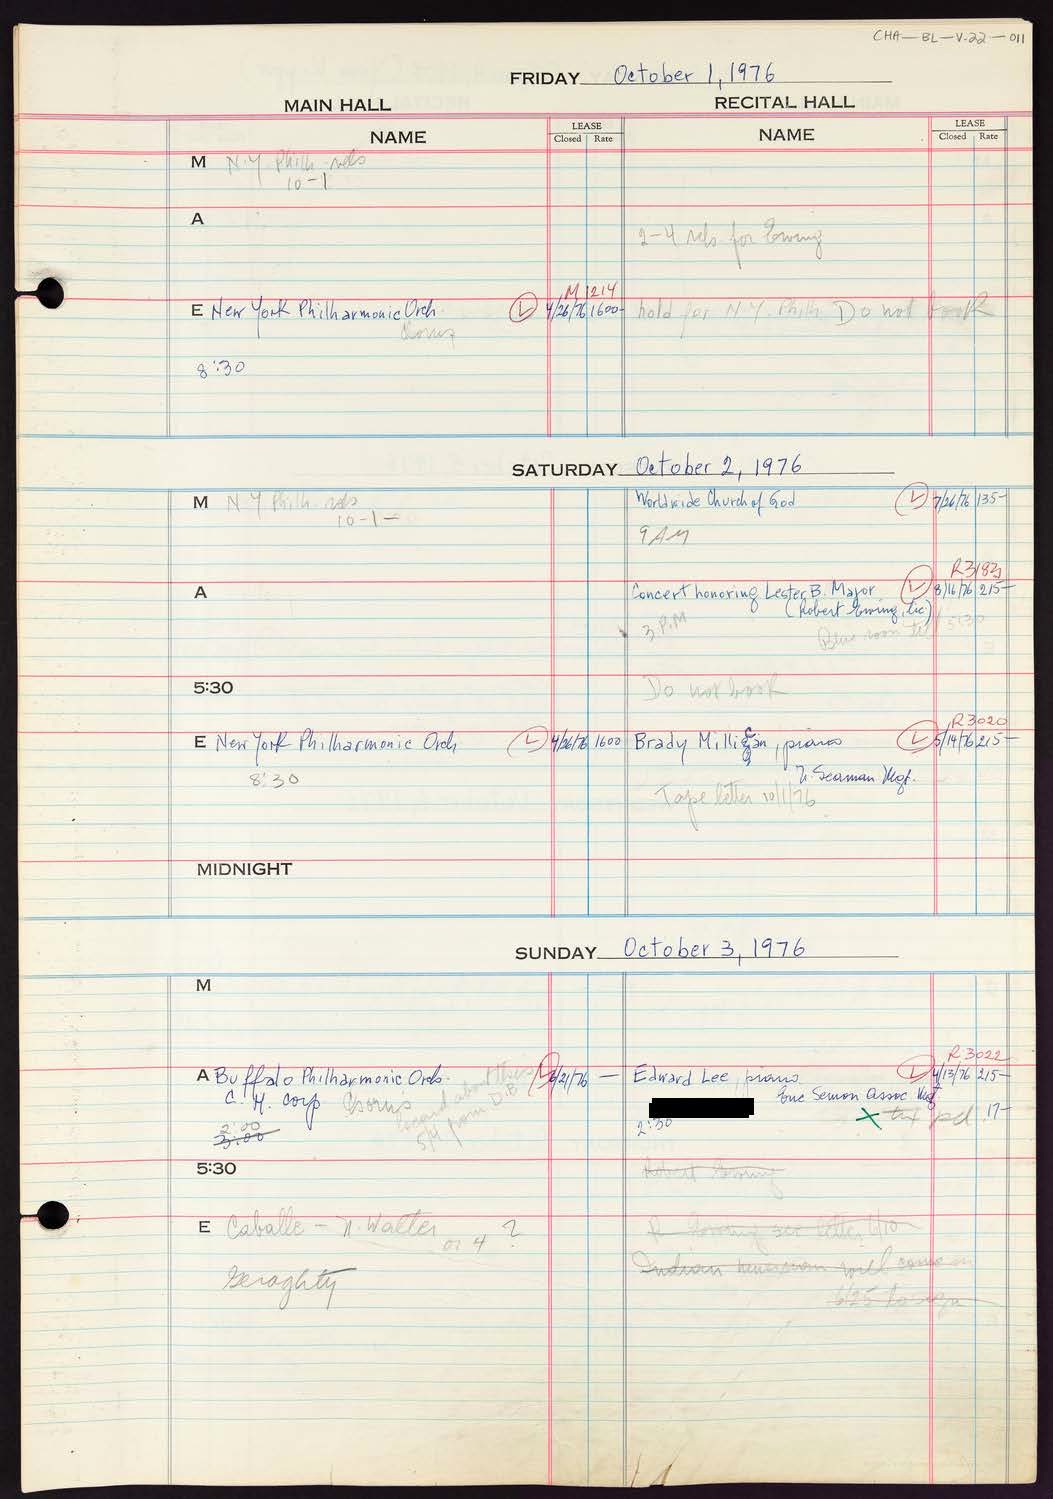 CHA-BL-V-22-011
FRIDAY October 1, 1976
MAIN HALL RECITAL HALL
NAME LEASE Closed Rate NAME LEASE Closed Rate
M N.Y. Philh. rehs
10-1
A
2-4 rehs. for Ewing
M 1214
E New York Philharmonic Orch. L 4/26/76 1600- hold for N.Y. Philh. Do not book
Chorus
8:30
SATURDAY October 2, 1976
M N.Y. Philh. rehs Worldwide Church of God L 7/26/76 135-
10-1-
9 AM
R3183
A Concert honoring Lester B. Major L 8/16/76 215-
(Robert Ewing, lic)
3 P.M
Blue room til 5:30
5:30 Do not book
R3020
E New York Philharmonic Orch L 4/26/76 1600 Brady Millican, piano L 5/14/76 215-
8:30 N. Seaman Mgt.
Tape letter 10/1/76
MIDNIGHT
SUNDAY October 3, 1976
M
R3022
A Buffalo Philharmonic Orch. L 6/21/76 - Edward Lee, piano L 4/13/76 215-
C. H. Corp Chorus Eric Semon Assoc Mgt.
about this
from D.B.
2:00 2:30 X tax pd 17-
3:00
5:30 Robert Ewing
E Caballe - N. Walter ? R Ewing see letter 6/10
or 4
Geraghty Indian musician will come in
6/25 to sign